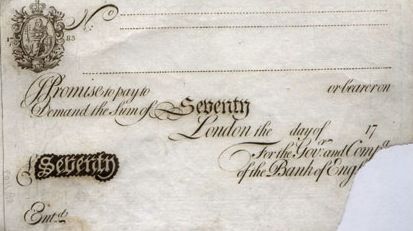 No
I Promise to pay to or bearer on
Demand the Sum of Seventy
London the day of 17
For the Govr. and Compa.
£ Seventy of the Bank of Engl
Entd.